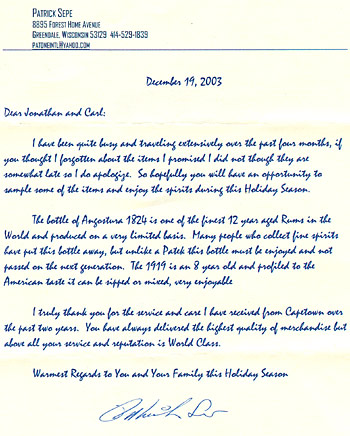 PATRICK SEPE
8895 FOREST HOME AVENUE
GREENDALE, WISCONSIN 53129 414-529-1839
PATONEINTL@YAHOO.COM
December 19, 2003
Dear Jonathan and Carl:
I have been quite busy and traveling extensively over the past four months, if
you thought I forgotten about the items I promised I did not though they are
somewhat late so I do apologize. So hopefully you will have an opportunity to
sample some of the items and enjoy the spirits during this Holiday Season.
The bottle of Angostura 1824 is one of the finest 12 year aged Rums in the
World and produced on a very limited basis. Many people who collect fine spirits
have put this bottle away, but unlike a Patek this bottle must be enjoyed and not
passed on the next generation. The 1919 is an 8 year old and profiled to the
American taste it can be sipped or mixed, very enjoyable
I truly thank you for the service and care I have received from Capetown over
the past two years. You have always delivered the highest quality of merchandise but
above all your service and reputation is World Class.
Warmest Regards to You and Your Family this Holiday Season